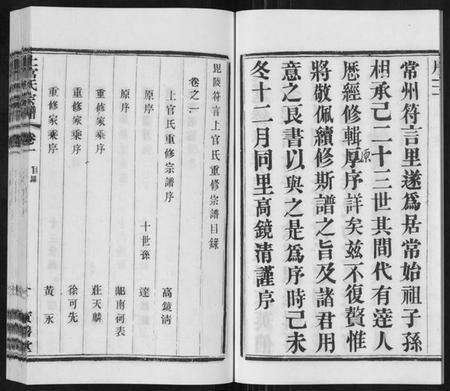 常州符言里遂爲居常始祖子孫
相承已二十三世其間代有達人
歷經修輯原序詳矣兹不復贅惟
將敬佩續修斯譜之旨及諸君用
意之良書以與之是爲序時己未
冬十二月同里高鏡清謹序
毘陵符言上官氏重修宗譜目錄
卷之一
上官氏重修宗譜序 高鏡清
原序 十世孫 達
原序
重修家乘序 莊天麟
重修家乘序 徐可先
重修家乘序 黃永
上官氏宗譜 卷一 目錄